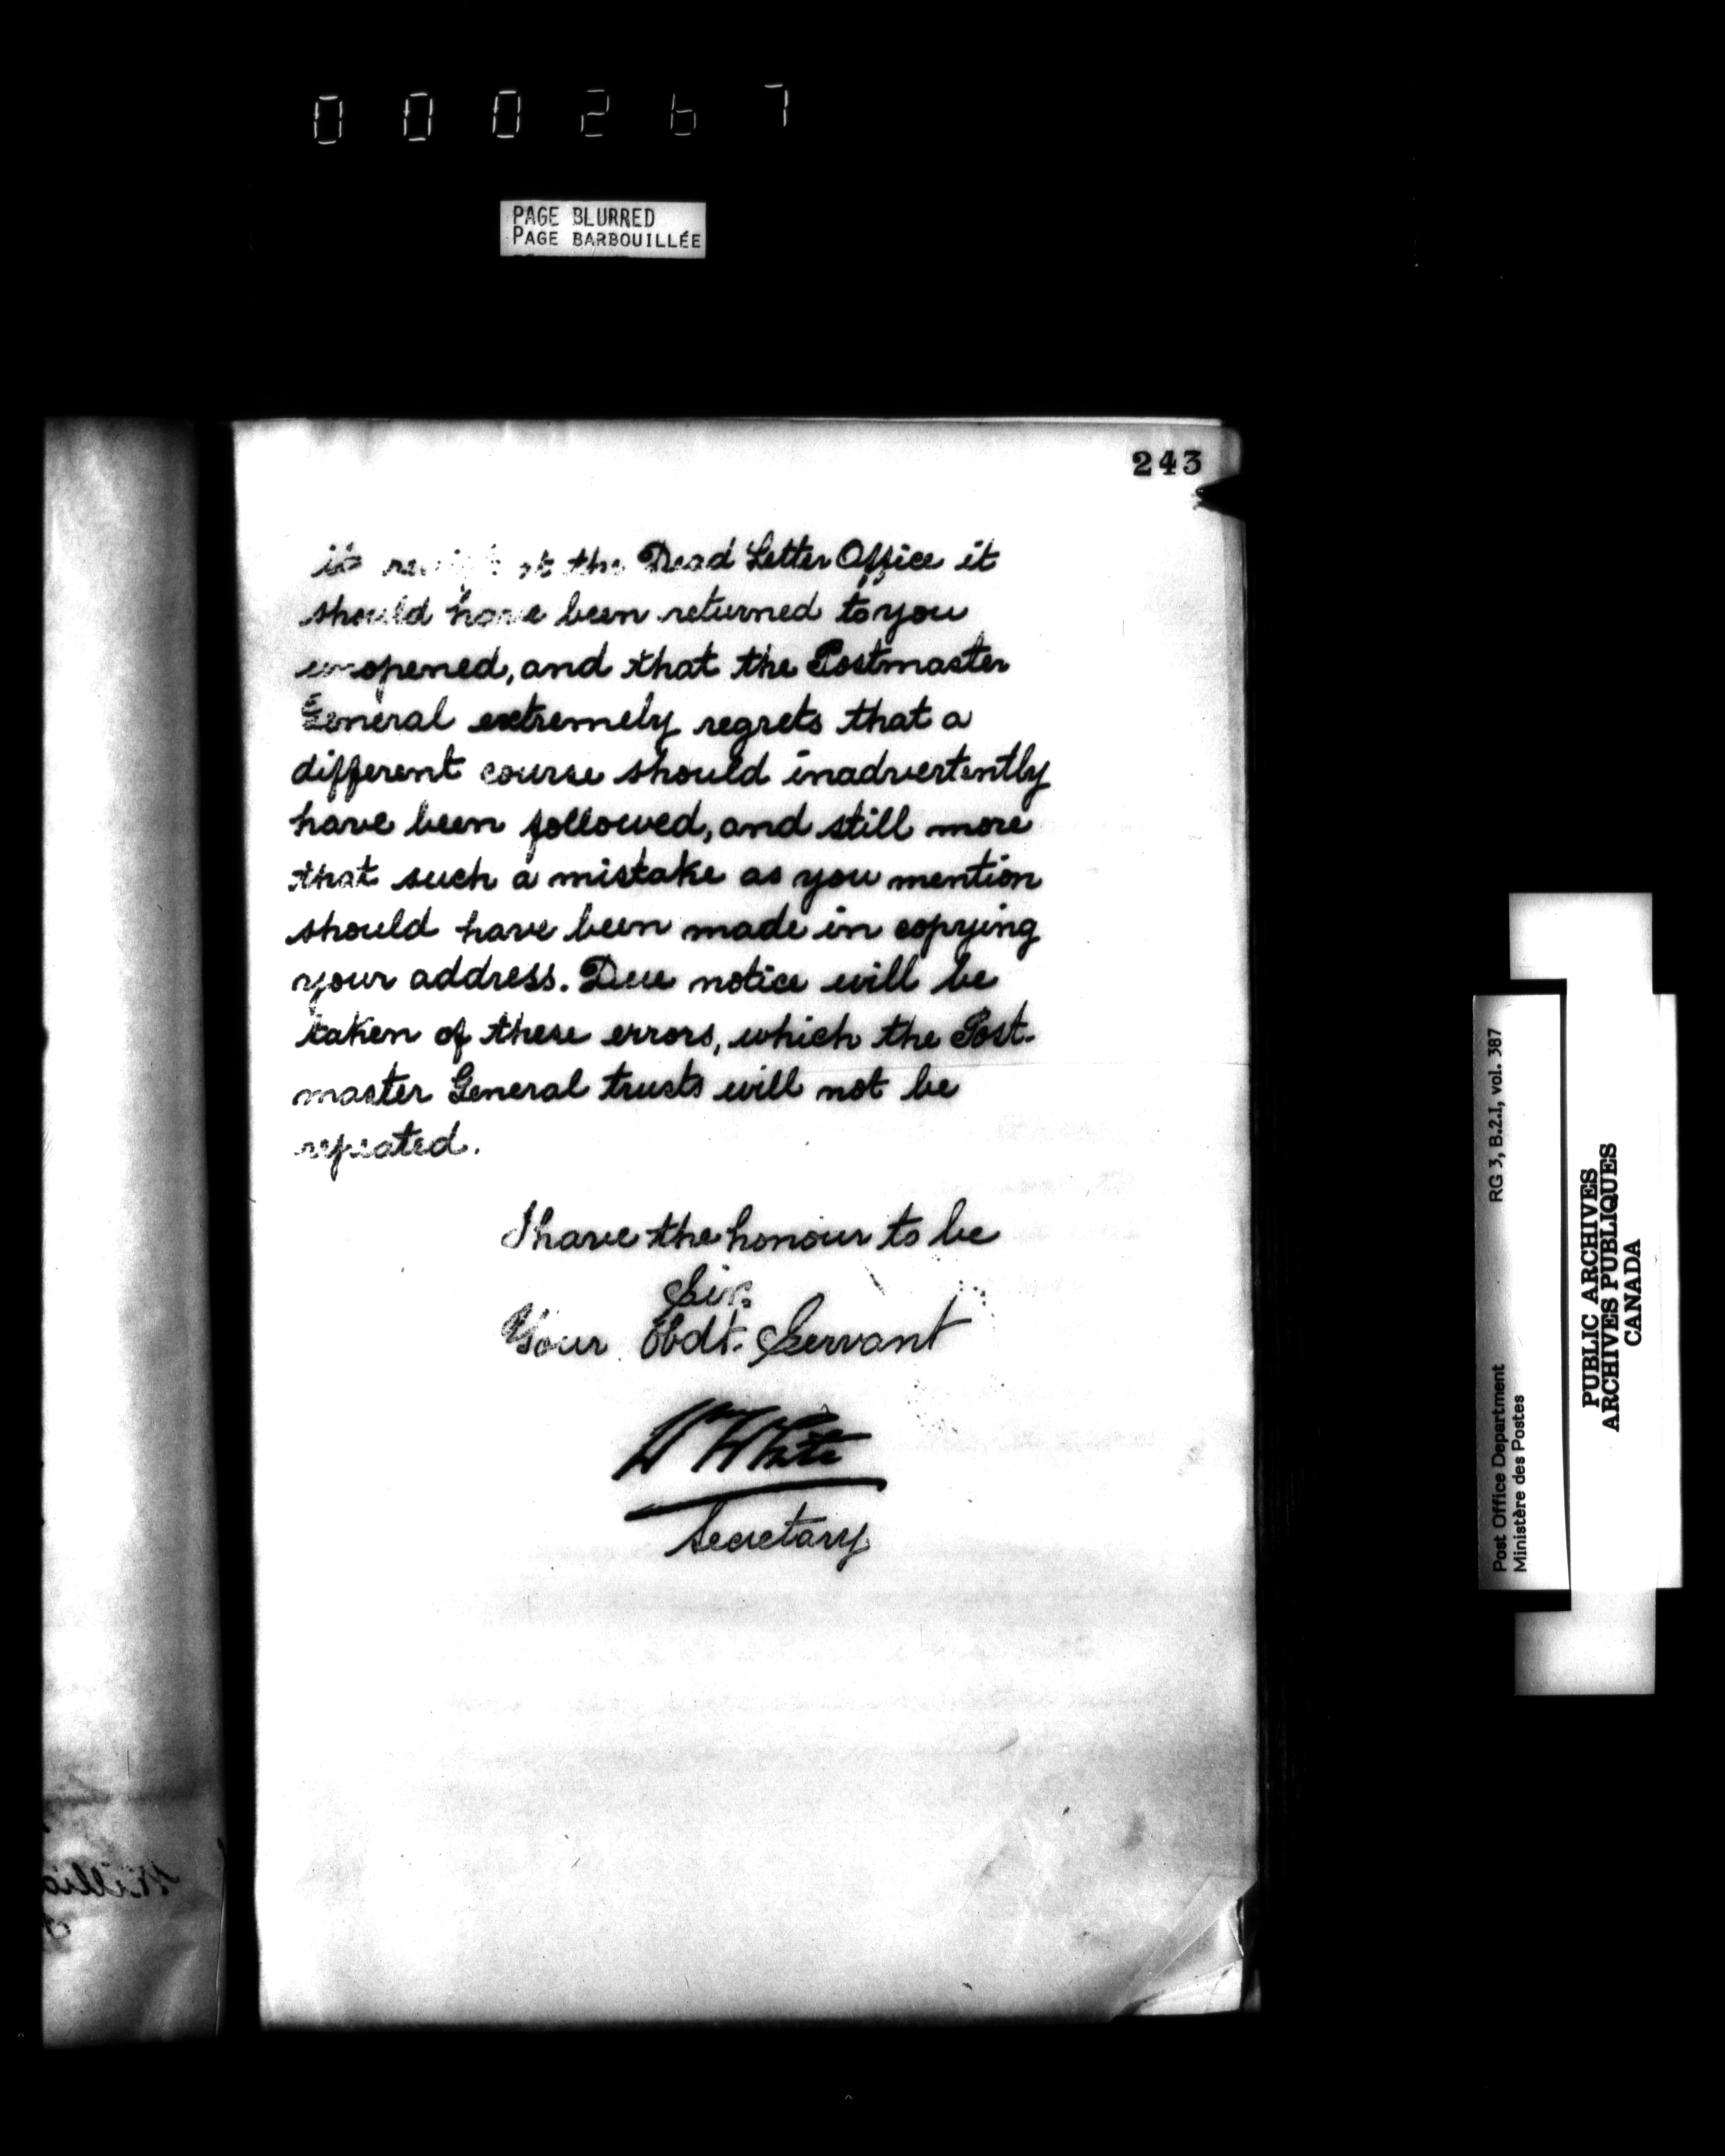 000267
PAGE BLURRED
PAGE BARBOUILLÉE
243
its receipt at the Dead Letter Office it
should have been returned to you
unopened, and that the Postmaster
General extremely regrets that a
different course should inadvertently
have been followed, and still more
that such a mistake as you mention
should have been made in copying
your address. Due notice will be
taken of these errors, which the Post-
master General trusts will not be
repeated.
I have the honour to be
Sir,
Your Obdt. Servant
Wm White
Secretary
Post Office Department RG 3, B.2.I, vol. 387
Ministère des Postes
PUBLIC ARCHIVES
ARCHIVES PUBLIQUES
CANADA